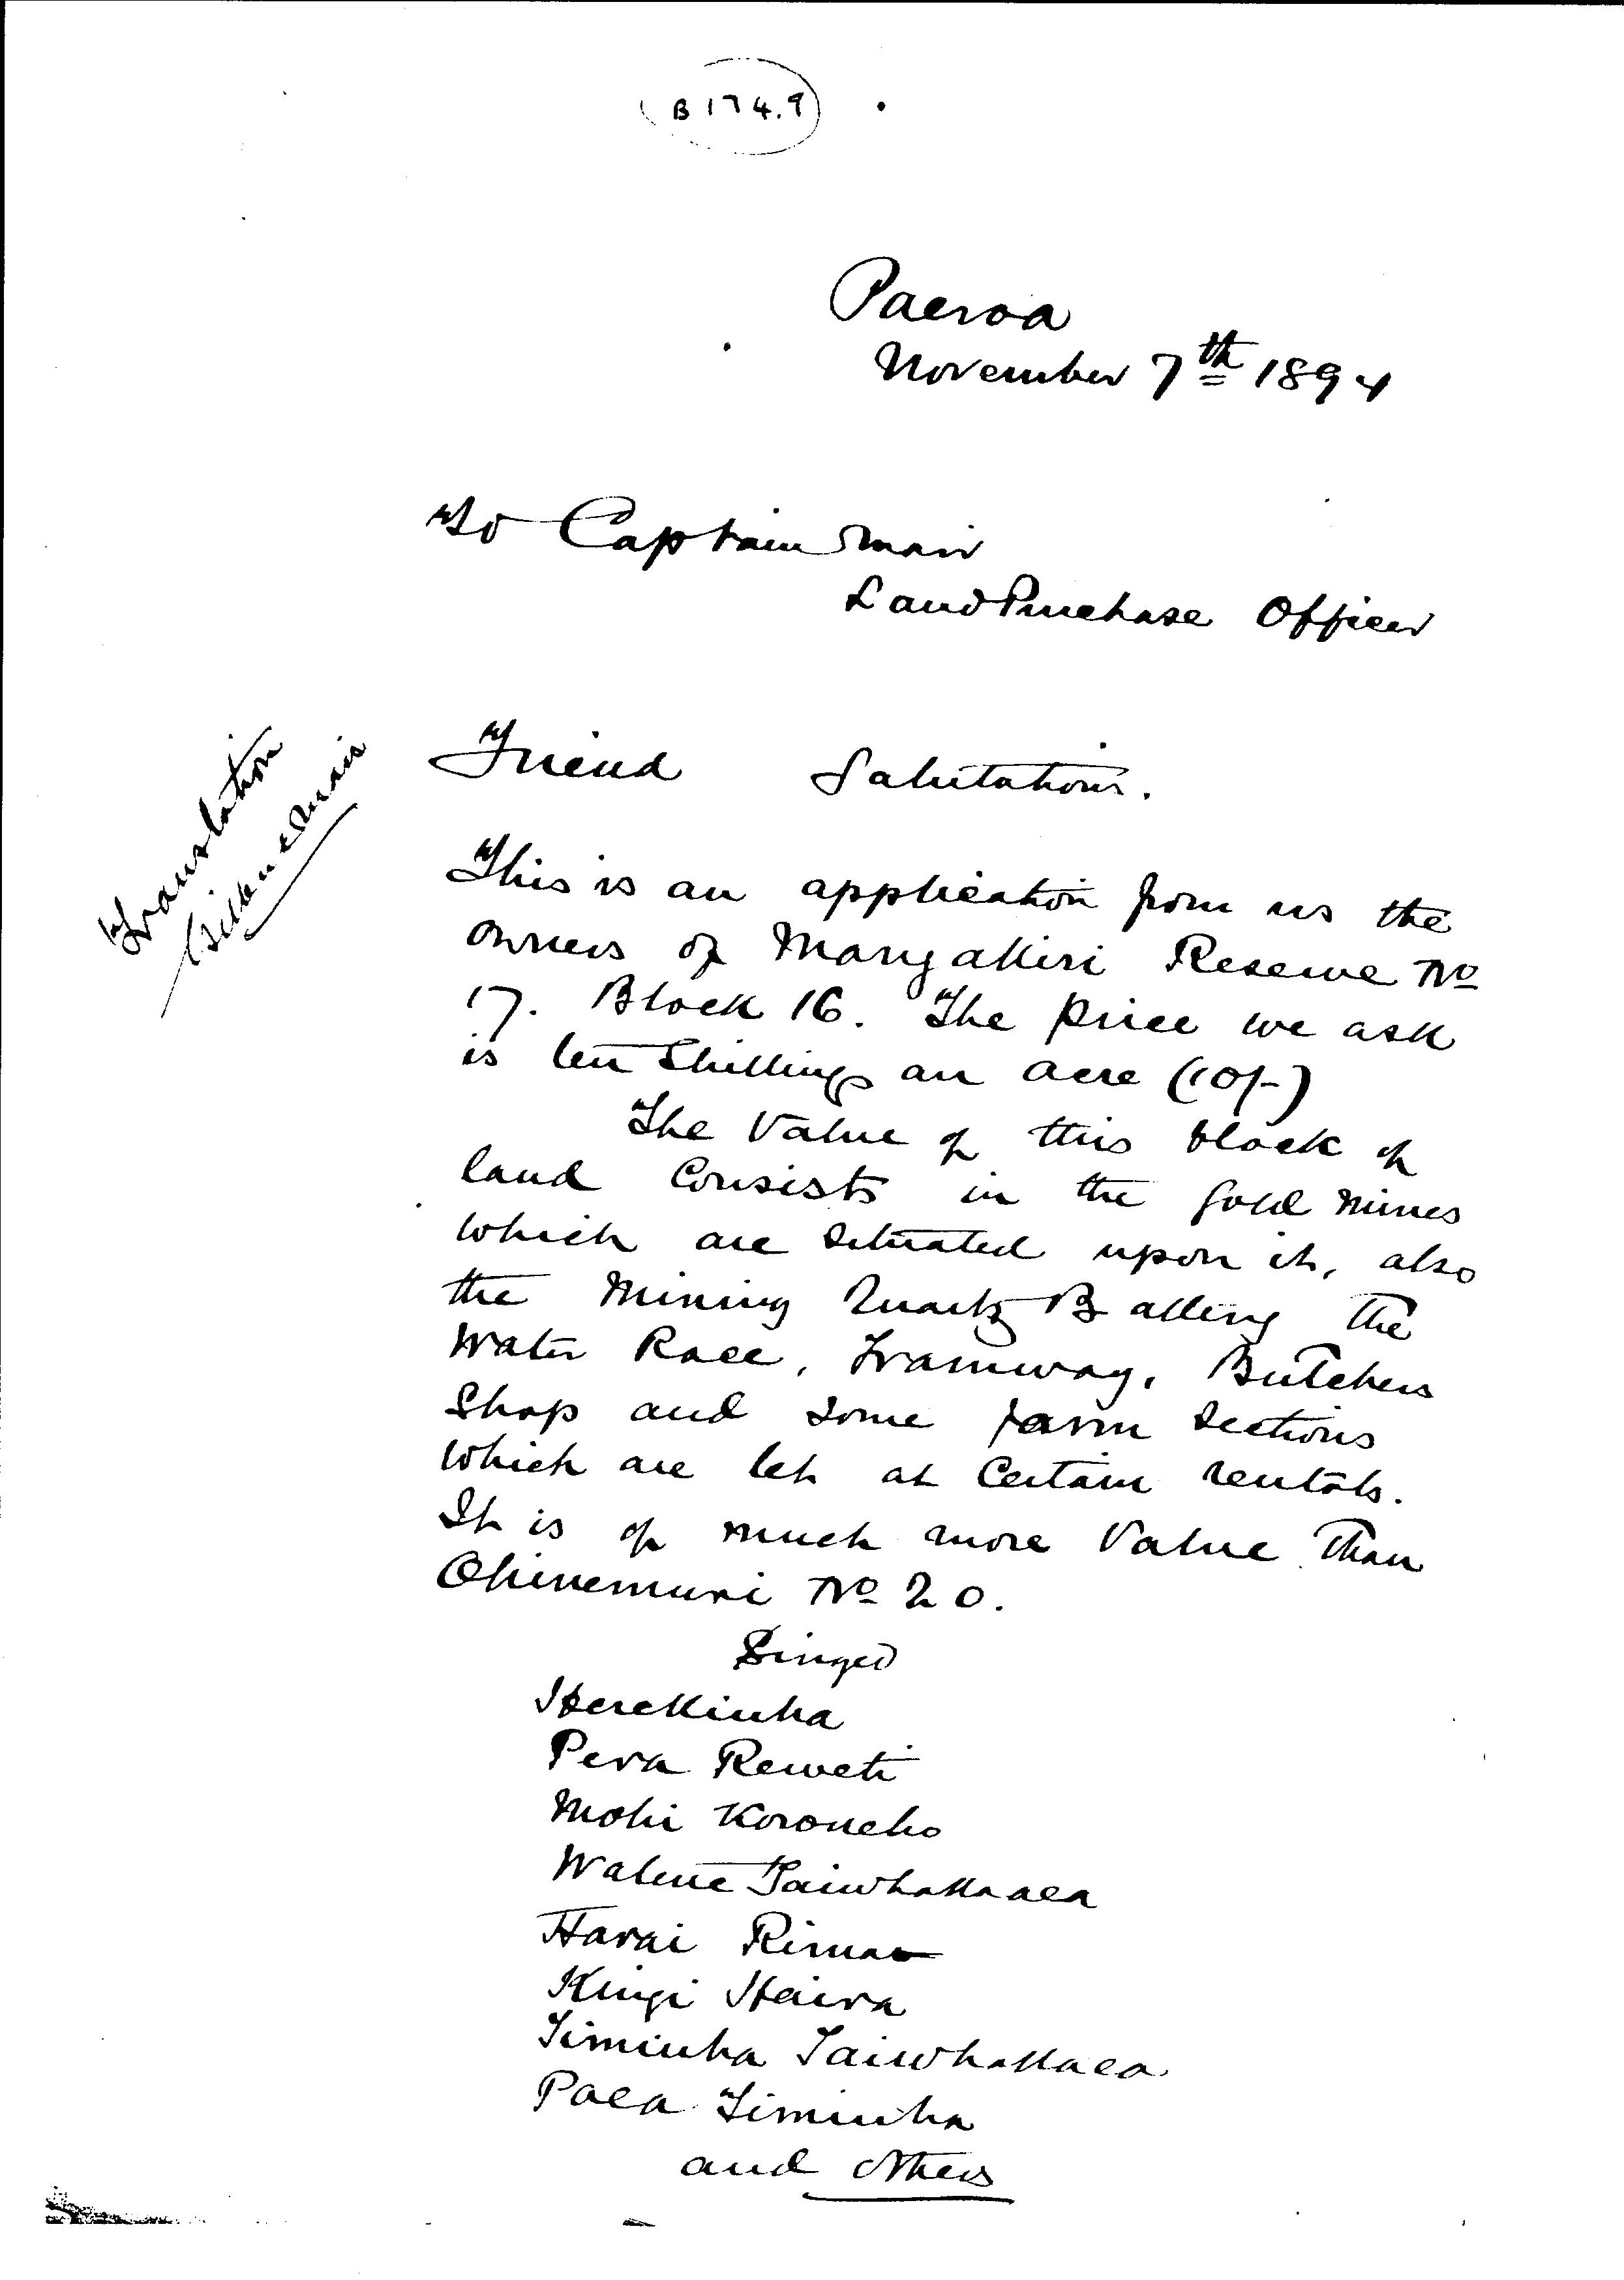 B 174.9
Paeroa
November 7th 1894
To Captain Mair
Land Purchase Officer
Translation
Gilbert Mair
Friend Salutations.
This is an application from us the
owners of Mangakiri Reserve No
17. Block 16. The price we ask
is ten Shillings an acre (10/-)
The Value of this block of
land Consists in the gold mines
which are situated upon it, also
the Mining Quartz Battery the
Water Race, Tramway, Butchers
Shop and some farm sections
which are let at Certain rentals.
It is of much more Value than
Ohinemuri No 20.
Singed
Pera Reweti
Mohi
Taiwhakaaea
Harai
Kingi Haira
Timiuha Taiwhakaea
Paea Timiuha
and others